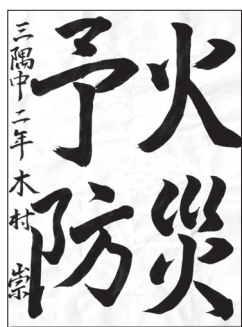 火災
予防
三隅中二年木村崇